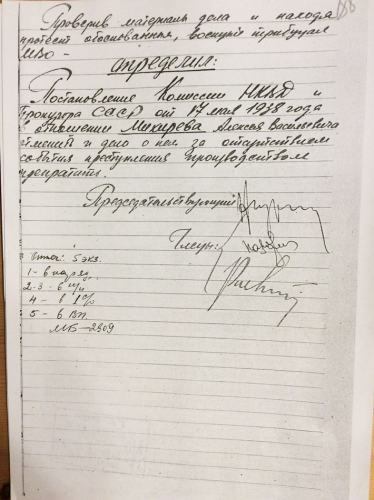 Проверив материалы дела и находя
протест обоснованным, военный трибунал
МВО -
определил:
Постановление Комиссии НКВД и
Прокурора СССР от 17 мая 1938 года
в отношении Макарева Алексея Васильевича
отменить и дело о нем за отсутствием
события преступления производством
прекратить.
Председательствующий
Члены:
5 экз.
1 - в наряд
2-3 - в
4 - в
5 - в ВП.
МБ-2909